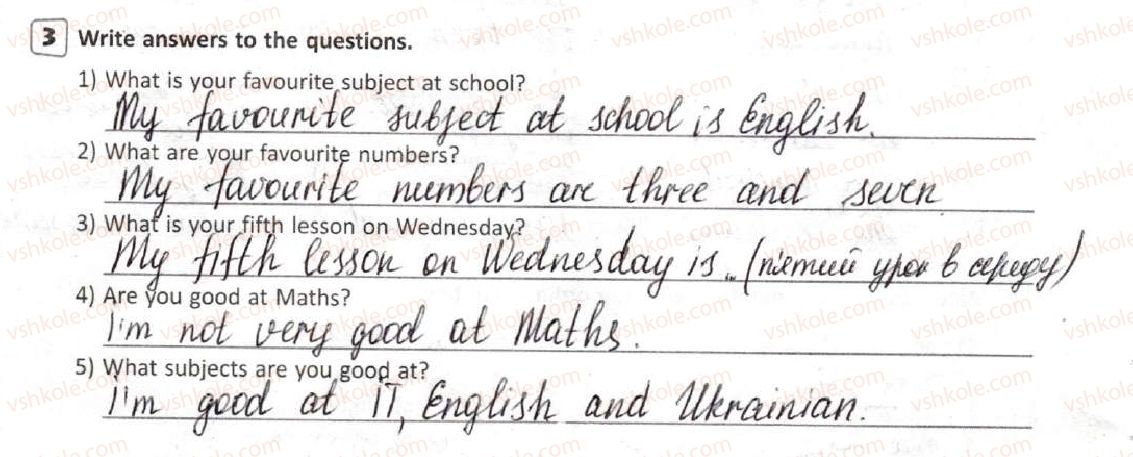 3 Write answers to the questions.
1) What is your favourite subject at school?
My favourite subject at school is English.
2) What are your favourite numbers?
My favourite numbers are three and seven
3) What is your fifth lesson on Wednesday?
My fifth lesson on Wednesday is... (п'ятий урок в середу)
4) Are you good at Maths?
I'm not very good at Maths.
5) What subjects are you good at?
I'm good at IT, English and Ukrainian.
vshkole.com